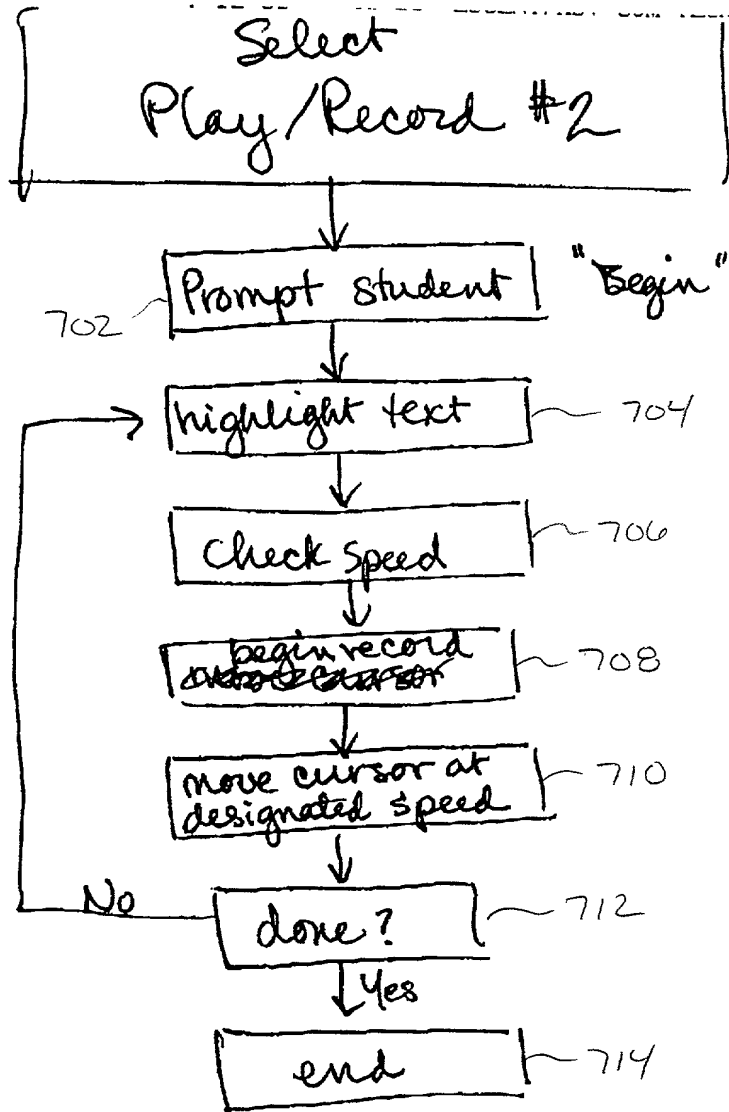 Select
Play/Record #2
Prompt student "Begin"
702
highlight text 704
Check speed 706
begin record 708
move cursor at 710
designated speed
No done? 712
Yes
end 714